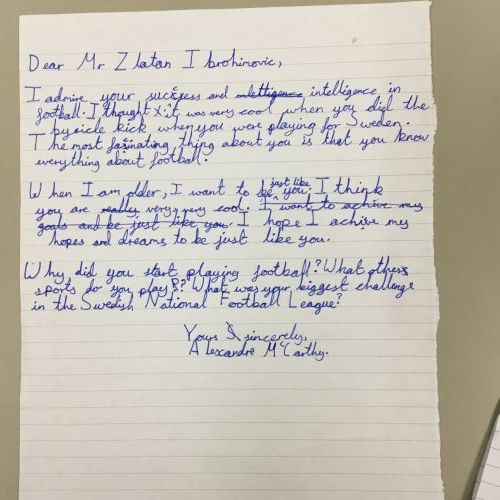 Dear Mr Zlatan Ibrohinovic,
I admire your success and intelligence in
football. I thought it was very cool when you did the
bysicle kick when you were playing for Sweden.
The most fasinating thing about you is that you know
everything about football.
When I am older, I want to be just like you. I think
you are really very, very cool. I want to achive my
goals and be just like you. I hope I achive my
hopes and dreams to be just like you.
Why did you start playing football? What others
sports do you play? What was your biggest challenge
in the Swedish National Football League?
Yours sincerely,
Alexandre McCarthy.